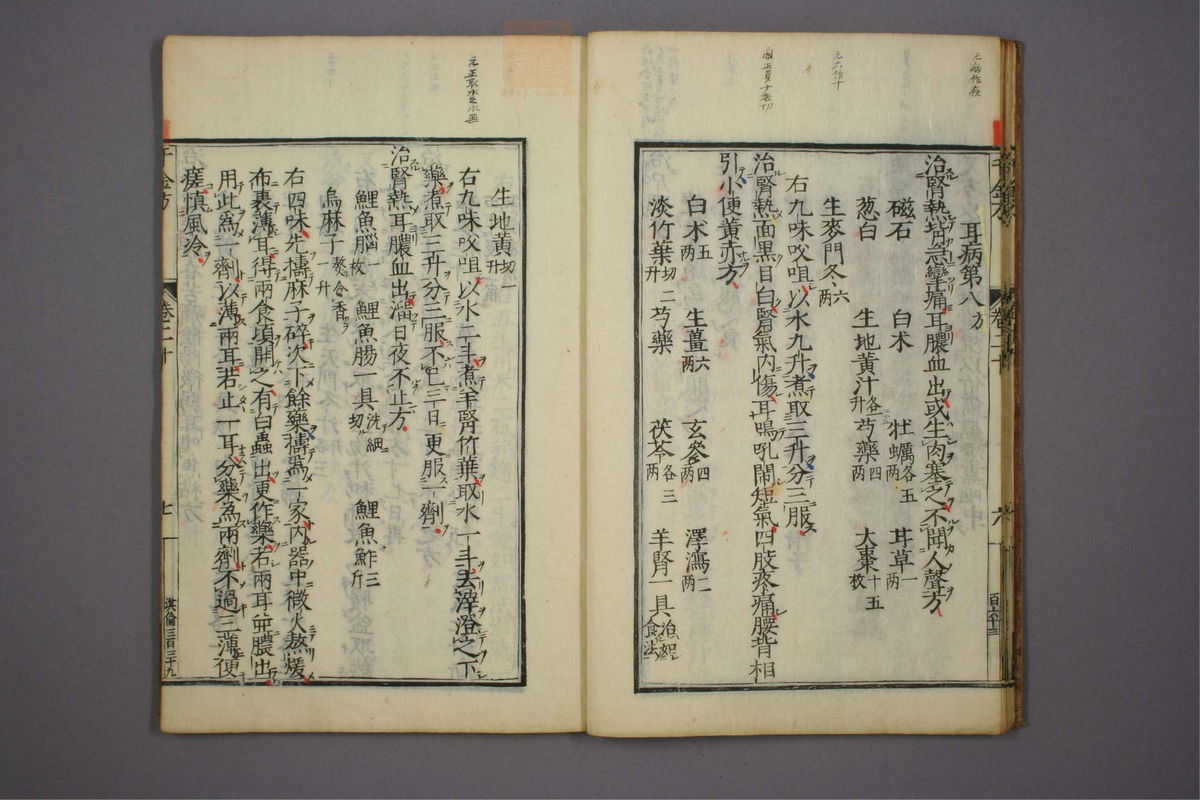 元病作㾮
元六作十
耳病第八方
治腎熱背急攣痛耳膿血出或生肉塞之不聞人聲方
磁石 白朮 牡蠣各五兩 耳草一兩
葱白 生地黃汁各升 芍藥四兩 大棗十五枚
生麥門冬六兩
右九味㕮咀以水九升煮取三升分三服
治腎熱面黑目白腎氣內傷耳鳴吼鬧短氣四肢疼痛腰背相
引小便黃赤方
白朮五兩 生薑六兩 玄參四兩 澤瀉二兩
淡竹葉切二升 芍藥 茯苓各三兩 羊腎一具治如食法
生地黃切一升
右九味㕮咀以水二斗煮羊腎竹葉取水一斗去滓澄之下
藥煮取三升分三服不已三日更服一劑
治腎熱耳膿血出溜日夜不止方
鯉魚腦一枚 鯉魚腸一具洗細切 鯉魚鮓三斤
烏麻子熬令香一升
右四味先擣麻子碎次下餘藥擣爲一家內器中微火熬煖
布裹薄耳得兩食頃開之有白蟲出更作藥若兩耳並膿出
用此為一劑以薄兩耳若止一耳分藥為兩劑不過三薄便
瘥慎風冷
千金方 卷二十 七